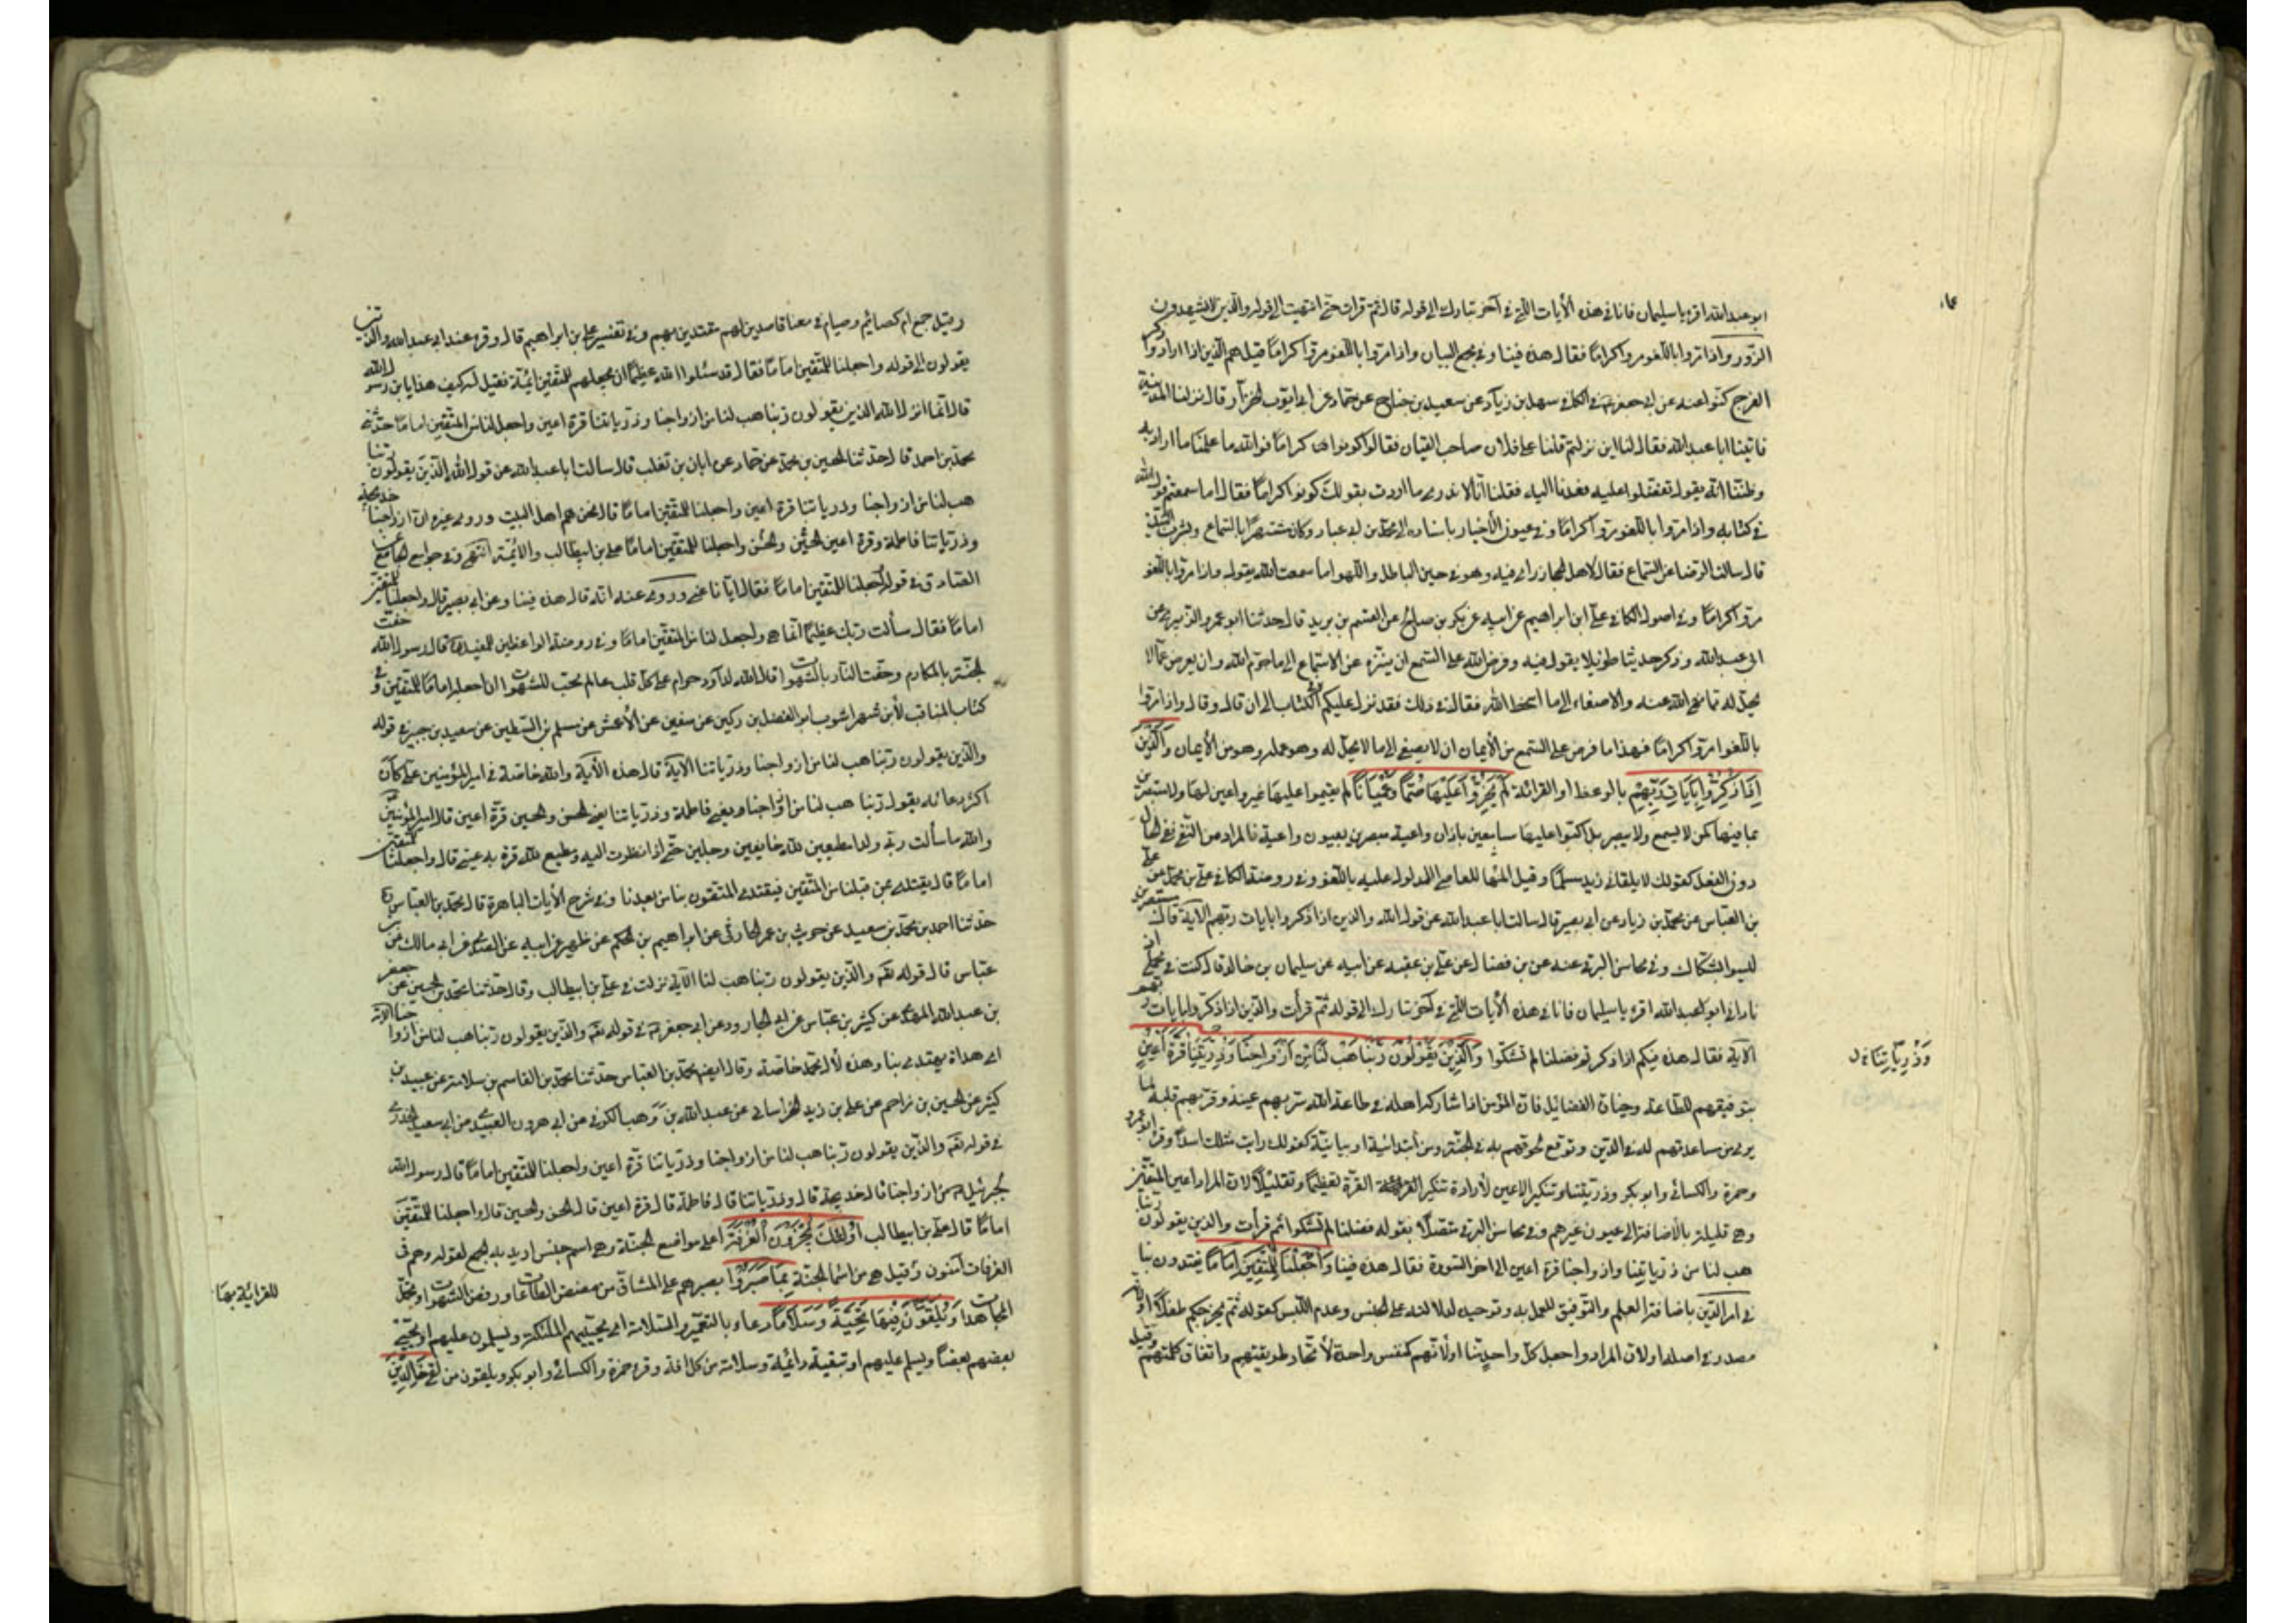 ابو عبدالله اقرء يا سليمان فانا في هذه الأيات اللتي في آخر تبارك الى قوله قال ثم قرات حتى انتهيت الى قوله والذين لا يشهدون
الزور واذا مروا باللغو مروا كراما فقال هذه فينا وفي مجمع البيان واذا مروا باللغو مروا كراما قيل هم الذين اذا ارادوا ذكر
الفرج كنوا عنه عن ابي جعفر في الكافي سهل بن زياد عن سعيد بن جناح عن حماد عن ابي ايوب الخزاز قال نزلنا المدينة
فاتينا ابا عبدالله فقال لنا اين نزلتم قلنا على فلان صاحب القيان فقال كونوا كراما فوالله ما علمنا ما اراد به
وظننا انه يقول تفضلوا عليه فعدنا اليه فقلنا انا لا ندري ما اردت بقولك كونوا كراما فقال اما سمعتم قول الله
في كتابه واذا مروا باللغو مروا كراما وفي عيون الأخبار باسناده الى محمد بن ابي عباد وكان مشتهرا بالسماع وبشرب النبيذ
قال سالت الرضا عن السماع فقال لاهل الحجاز راى فيه وهو في حيز الباطل واللهو اما سمعت الله يقول واذا مروا باللغو
مروا كراما وفي اصول الكافي علي ابن ابراهيم عن ابيه عن بكر بن صالح عن القسم بن بريد قال حدثنا ابو عمرو الزبيري عن
ابي عبدالله وذكر حديثا طويلا يقول فيه وفرض الله على السمع ان يتنزه عن الاستماع الى ما حرم الله وان يعرض عما لا
يحل له مما نهى الله عنه والاصغاء الى ما اسخط الله فقال في ذلك فقد نزل عليكم في الكتاب الى ان قال وقال واذا مروا
باللغو مروا كراما فهذا ما فرض على السمع من الأيمان ان لا يصغى الى ما لا يحل له وهو عمله وهو من الأيمان وَالَّذِينَ
إِذَا ذُكِّرُوا بِآيَاتِ رَبِّهِمْ بالوعظ او القرائة لَمْ يَخِرُّوا عَلَيْهَا صُمًّا وَعُمْيَانًا لم يقيموا عليها غير واعين لها ولا متبصرين
بما فيها كمن لا يسمع ولا يبصر بل اكبوا عليها سامعين باذان واعية مبصرين بعيون واعية فالمراد من النفي نفي الحال
دون الفعل كقولك لا يلقاني زيد مسلما وقيل الها للمعاصي المدلول عليه باللغو وفي روضة الكافي علي بن محمد عن علي
بن العباس عن محمد بن زياد عن ابي بصير قال سالت ابا عبدالله عن قول الله والذين اذا ذكروا بايات ربهم الاية قال مستبصرين
ليسوا بشكاك وفي محاسن البرقي عنه عن بن فضال عن علي بن عقبه عن ابيه عن سليمان بن خالد قال كنت في محمل اقرء
نادانى ابو عبدالله اقرء يا سليمان فانا في هذه الأيات اللتي في آخر تبارك الى قوله ثم قرأت والذين اذا ذكروا بايات ربهم
الآية فقال هذه فيكم اذا ذكر تم فضلنا لم تشكوا وَالَّذِينَ يَقُولُونَ رَبَّنَا هَبْ لَنَا مِنْ أَزْوَاجِنَا وَذُرِّيَّتِنَا قُرَّةَ أَعْيُنٍ
وَذُرِّيَّاتِنَا
بتوفيقهم للطاعة وحيازة الفضائل فان المؤمن اذا شاركه اهله في طاعة الله سر بهم عينه وقر بهم قلبه لما
يرى من مساعدتهم له في الدين وتوقع لحوقهم به في الجنة ومن ابتدائية او بيانية كقولك رايت منك اسدا وقرا ابو عمرو
وحمزة والكسائي وابو بكر وذريتنا وتنكير الاعين لأرادة تنكير القرة تعظيما وتقليلها لان المراد اعين المتقين
وهي قليلة بالأضافة الى عيون غيرهم وفي محاسن البرقي متصلا بقوله فضلنا لم تشكوا ثم قرأت والذين يقولون ربنا
هب لنا من ذرياتنا وازواجنا قرة اعين الى اخر السورة فقال هذه فينا وَاجْعَلْنَا لِلْمُتَّقِينَ إِمَامًا يقتدون بنا
في امر الدين باضافة العلم والتوفيق للعمل به وتوحيده لدلالته على الجنس وعدم اللبس كقوله ثم يخرجكم طفلا او لانه
مصدر في اصله او لان المراد واجعل كل واحد منا او لأنهم كنفس واحدة لأتحاد طريقتهم واتفاق كلمتهم
وقيل جمع ام كصائم وصيام في معنا قاصدين لهم مقتدين بهم وفي تفسير علي بن ابراهيم قال وقرء عند ابي عبدالله والذين
يقولون الى قوله واجعلنا للمتقين اماما فقال قد سئلوا الله عظيما ان يجعلهم للمتقين ائمة فقيل له كيف هذا يابن رسول الله
قال انما انزل الله الذين يقولون ربنا هب لنا من ازواجنا وذرياتنا قرة اعين واجعل لنا من المتقين اماما حدثنا
محمد بن احمد قال حدثنا الحسين بن محمد عن حماد عن ابان بن تغلب قال سالت ابا عبدالله عن قول الله الذين يقولون ربنا
هب لنا من ازواجنا وذرياتنا قرة اعين واجعلنا للمتقين اماما قال نحن هم اهل البيت وروى غيره ان ازواجنا خديجة
وذرياتنا فاطمة وقرة اعين الحسن والحسين واجعلنا للمتقين اماما علي بن ابيطالب والائمة انتهى وفي جوامع الجامع عن
الصادق في قوله واجعلنا للمتقين اماما فقال ايانا عنى وروى عنه انه قال هذه فينا وعن ابي بصير قال واجعلنا للمتقين
اماما فقال سألت ربك عظيما انما هي واجعل لنا من المتقين اماما وفي روضة الواعظين للمفيد قال رسول الله حفت
الجنة بالمكاره وحفت النار بالشهوات قال الله لداود حرام على كل قلب عالم محب للشهوات ان اجعله اماما للمتقين وفي
كتاب المناقب لأبن شهراشوب ابو الفضل بن ركين عن سفين عن الأعمش عن مسلم بن البطين عن سعيد بن جبير في قوله
والذين يقولون ربنا هب لنا من ازواجنا وذرياتنا الاية قال هذه الأية والله خاصة في امير المؤمنين علي كان
اكثر دعائه يقول ربنا هب لنا من ازواجنا ويعني فاطمة وذرياتنا يعني الحسن والحسين قرة اعين قال امير المؤمنين
والله ما سألت ربي ولدا مطيعين لله خايفين وجلين حتى اذا نظرت اليه وهو مطيع لله قرة به عيني قال واجعلنا للمتقين
اماما قال يقتدى بمن قبلنا من المتقين فيقتدى المتقون بنا من بعدنا وفي شرح الأيات الباهرة قال محمد بن العباس ره
حدثنا احمد بن محمد بن سعيد عن حريث بن محمد الحارثي عن ابراهيم بن الحكم عن ظهير عن ابيه عن السدي عن ابي مالك عن بن
عباس قال قوله تعه والذين يقولون ربنا هب لنا الآية نزلت في علي بن ابيطالب وقال حدثنا محمد بن الحسين عن جعفر
بن عبدالله المحمدي عن كثير بن عياش عن ابي الجارود عن ابي جعفر في قوله تعه والذين يقولون ربنا هب لنا من ازواجنا الاية
اى هداة يهتدى بنا وهذه لأل محمد خاصة وقال ايضا محمد بن العباس حدثنا محمد بن القاسم بن سلام عن عبيد بن
كثير عن الحسين بن مزاحم عن علي بن زيد الخراساني عن عبدالله بن وهب الكوفي عن ابي هرون العبدي عن ابي سعيد الخدري
في قوله تعه والذين يقولون ربنا هب لنا من ازواجنا وذرياتنا قرة اعين واجعلنا للمتقين اماما قال رسول الله
لجبرئيل من ازواجنا قال خديجة قال وذرياتنا قال فاطمة قال قرة اعين قال الحسن والحسين قال واجعلنا للمتقين
اماما قال علي بن ابيطالب أُولَئِكَ يُجْزَوْنَ الْغُرْفَةَ اعلى مواضع الجنة وهي اسم جنس اريد به الجمع لقوله وهم في
الغرفات آمنون وقيل هي من اسماء الجنة بِمَا صَبَرُوا بصبرهم على المشاق من مضض الطاعات ورفض الشهوات وتحمل
المجاهدات وَيُلَقَّوْنَ فِيهَا تَحِيَّةً وَسَلَامًا دعاء بالتعمير والسلامة اى يحييهم الملئكة ويسلمون عليهم او يحيي
بعضهم بعضا ويسلم عليهم او تبقية دائمة وسلامة من كل افة وقرء حمزة والكسائي وابو بكر ويلقون من لقى خَالِدِينَ